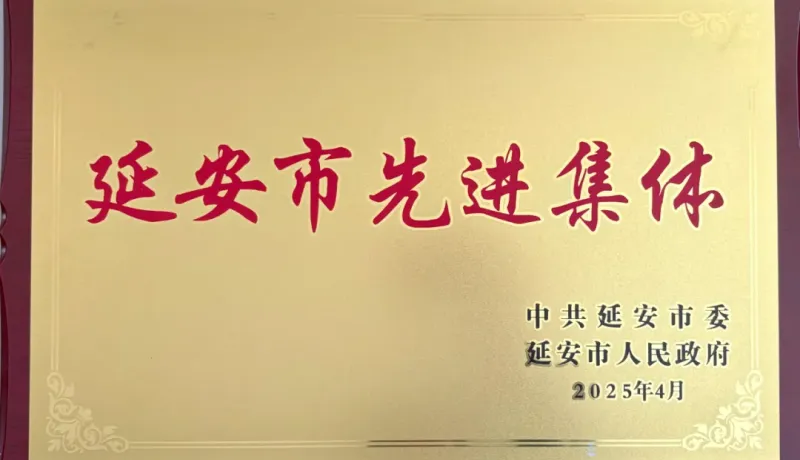 延安市先进集体
中共延安市委
延安市人民政府
2025年4月